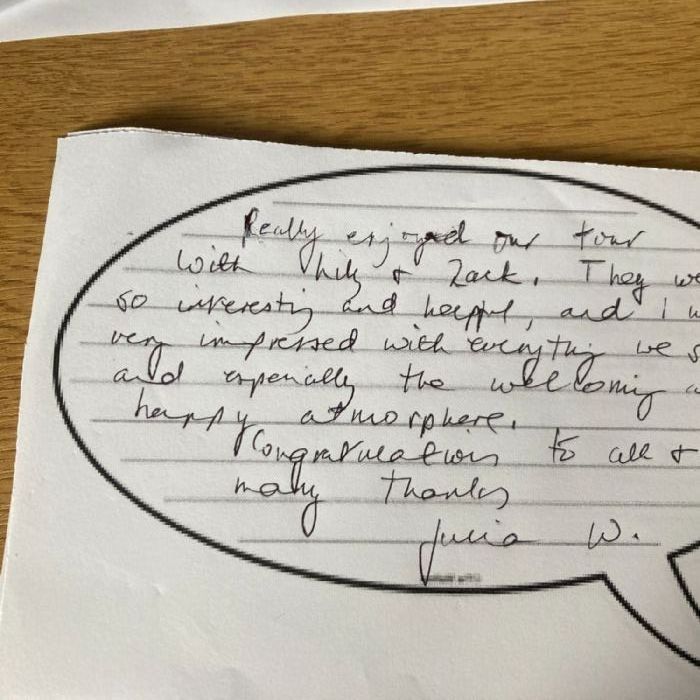 Really enjoyed our tour
with & Zack. They we
so interesting and helpful, and I w
very impressed with everything we s
and especially the welcoming a
happy atmosphere.
Congratulations to all &
many thanks
Julia W.